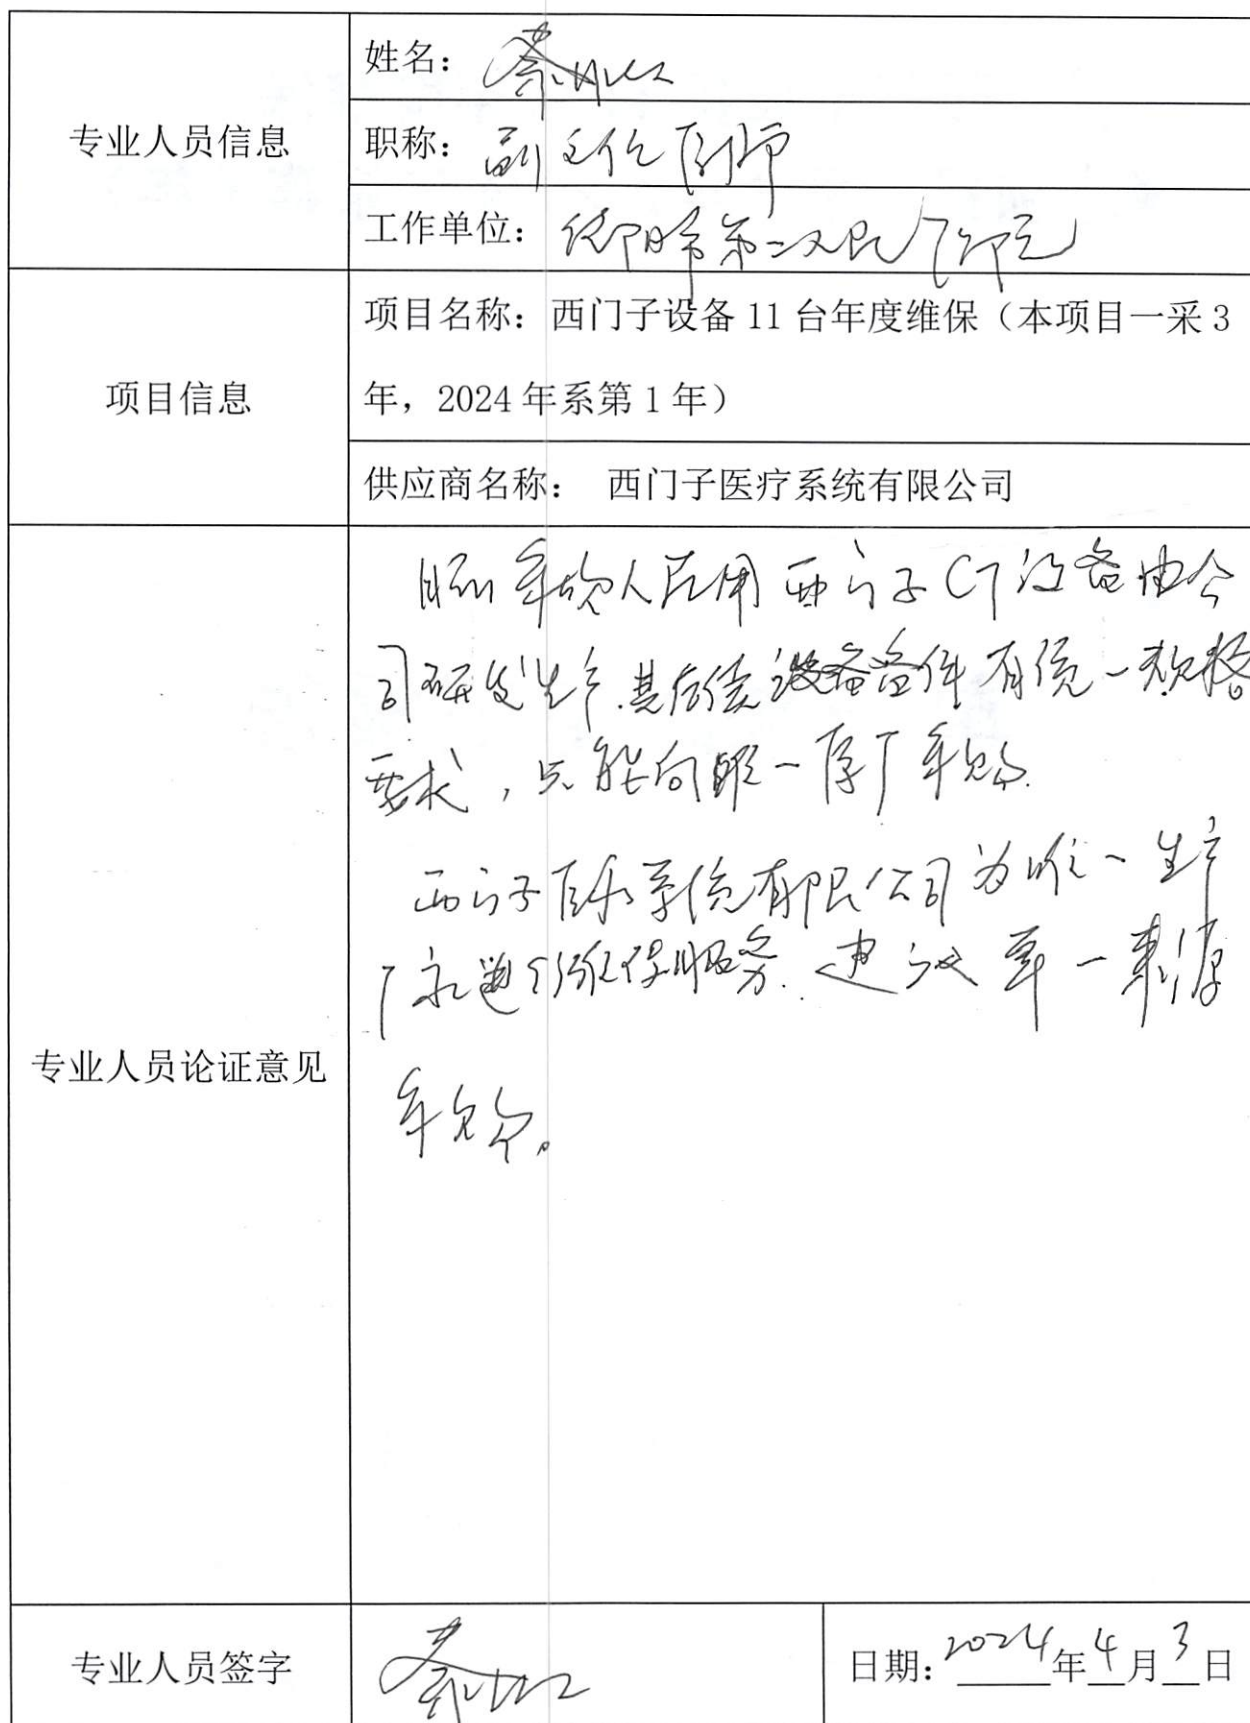 专业人员信息
姓名：蔡
职称：副主任医师
工作单位：德阳市第二人民医院
项目信息
项目名称：西门子设备 11 台年度维保（本项目一采 3
年，2024 年系第 1 年）
供应商名称： 西门子医疗系统有限公司
专业人员论证意见
人民 用 西门子 CT 设备由公
司研发生产.其后续设备备件有统一规格
要求，只能向唯一原厂采购.
西门子医疗系统有限公司为唯一生产
厂家进行维保服务.建议单一来源
采购。
专业人员签字
蔡
日期：2024年4月3日